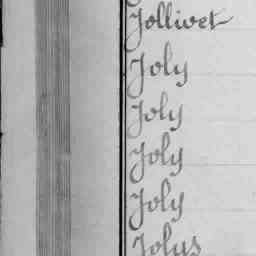 Jollivet
Joly
Joly
Joly
Joly
Jolys